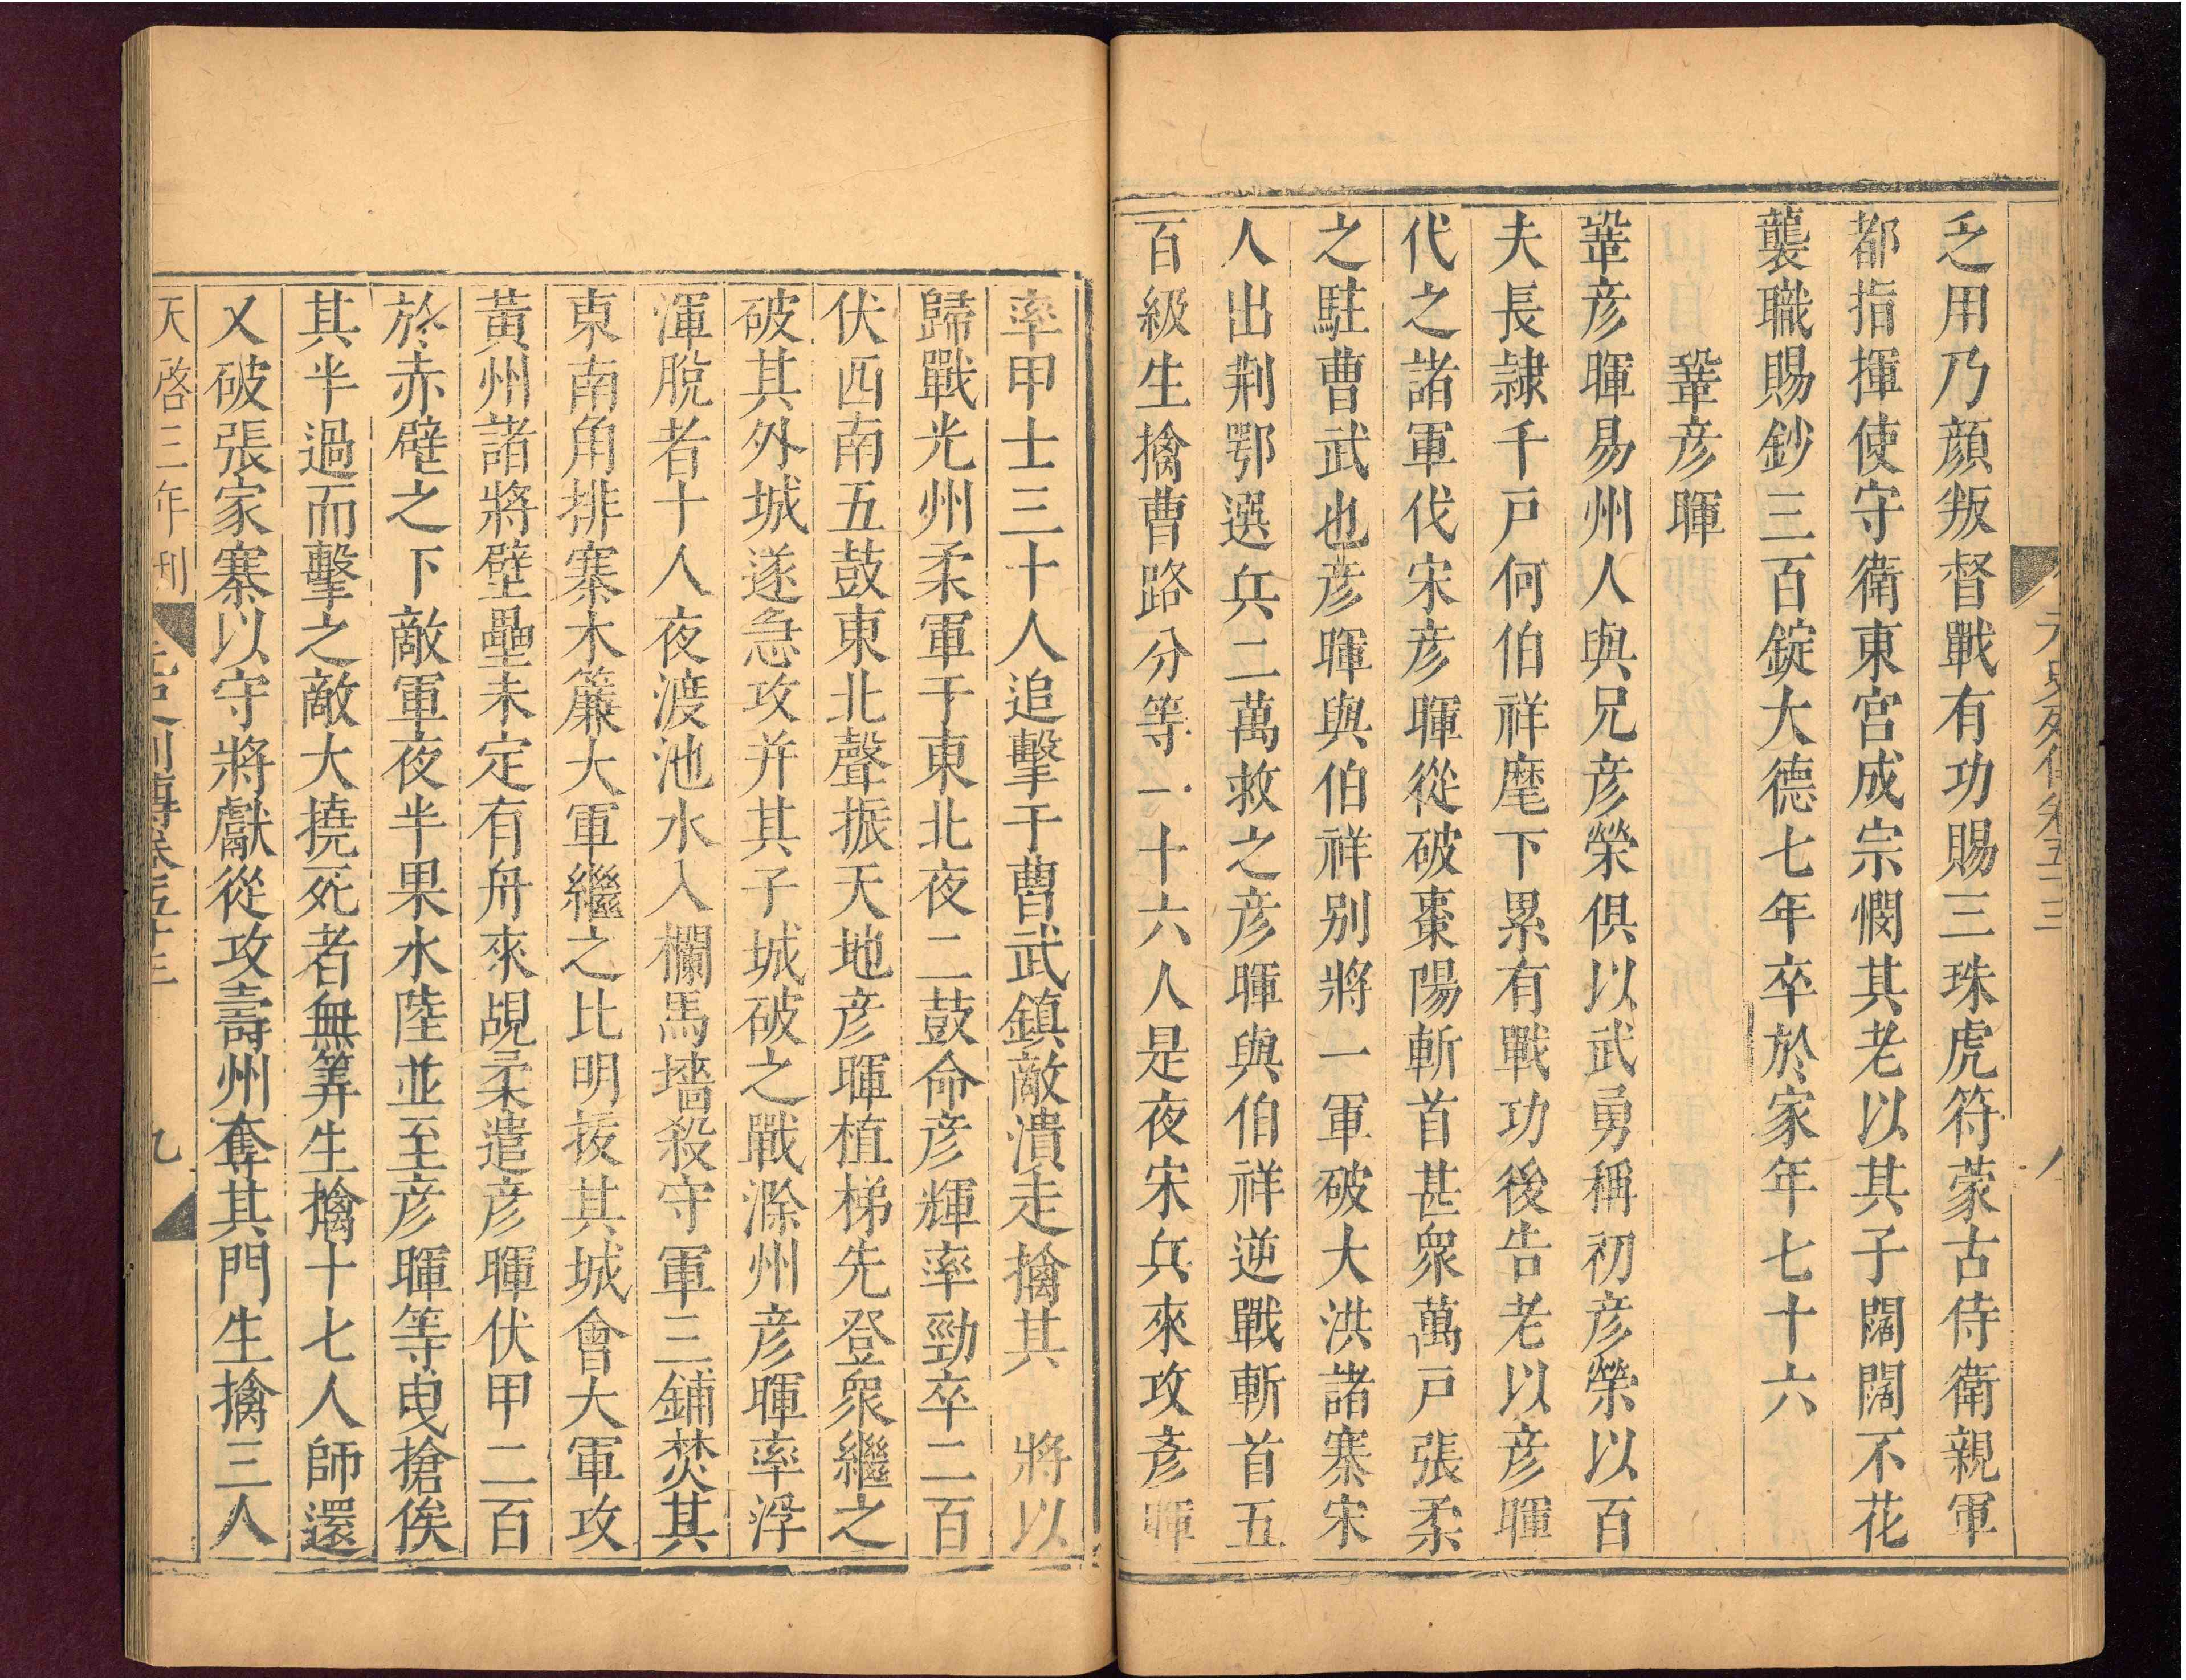 元史列傳卷五十三 八
乏用乃顔叛督戰有功賜三珠虎符蒙古侍衛親軍
都指揮使守衛東宮成宗憫其老以其子闊闊不花
襲職賜鈔三百錠大德七年卒於家年七十六
鞏彦暉
鞏彦暉易州人與兄彦榮俱以武勇稱初彦榮以百
夫長隷千戸何伯祥麾下累有戰功後告老以彦暉
代之諸軍伐宋彦暉從破棗陽斬首甚衆萬戸張柔
之駐曹武也彦暉與伯祥别將一軍破大洪諸寨宋
人出荆鄂選兵二萬救之彦暉與伯祥逆戰斬首五
百級生擒曹路分等一十六人是夜宋兵來攻彦暉
率甲士三十人追擊于曹武鎮敵潰走擒其 將以
歸戰光州柔軍于東北夜二鼓命彦輝率勁卒二百
伏西南五鼓東北聲振天地彦暉植梯先登衆繼之
破其外城遂急攻并其子城破之戰滁州彦暉率浮
渾脫者十人夜渡池水入欄馬墻殺守軍三鋪焚其
東南角排寨木簾大軍繼之比明拔其城會大軍攻
黃州諸將壁壘未定有舟來覘柔遣彦暉伏甲二百
於赤壁之下敵軍夜半果水陸並至彦暉等曳搶俟
其半過而擊之敵大撓死者無筭生擒十七人師還
又破張家寨以守將獻從攻壽州奪其門生擒三人
天啓三年刊 元史列傳卷五十三 九